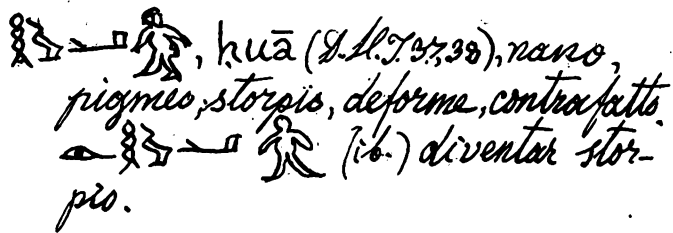 , ḥuā (D.H.I. 37,38), nano,
pigmeo, storpio, deforme, contrafatto.
(ib.) diventar stor-
pio.